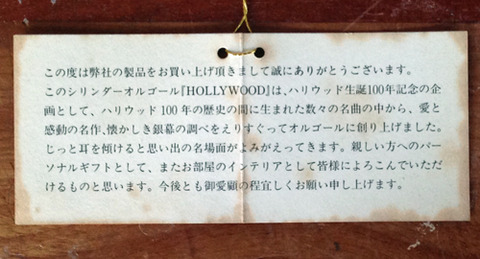 この度は弊社の製品をお買い上げ頂きまして誠にありがとうございます。
このシリンダーオルゴール『HOLLYWOOD』は、ハリウッド生誕100年記念の企
画として、ハリウッド100年の歴史の間に生まれた数々の名曲の中から、愛と
感動の名作、懐かしき銀幕の調べをえりすぐってオルゴールに創り上げました。
じっと耳を傾けると思い出の名場面がよみがえってきます。親しい方へのパー
ソナルギフトとして、またお部屋のインテリアとして皆様によろこんでいただ
けるものと思います。今後とも御愛顧の程宜しくお願い申し上げます。